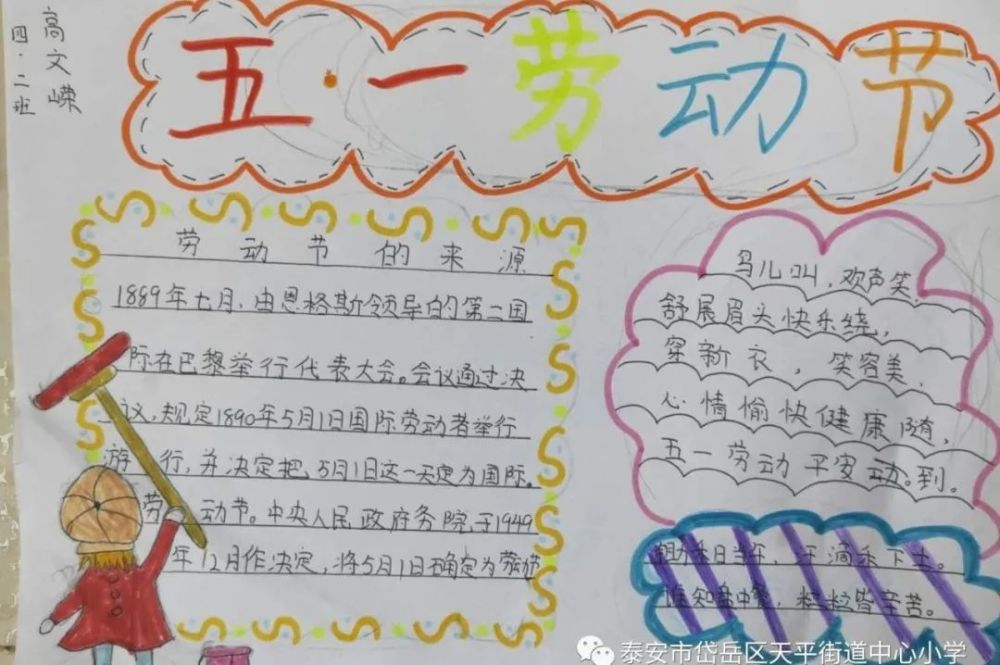 高文嵘
四·二班
五·一劳动节
劳动节的来源
1889年七月,由恩格斯领导的第二国
际在巴黎举行代表大会。会议通过决
议,规定1890年5月1日国际劳动者举行
游行,并决定把,5月1日这一天定为国际。
劳动节。中央人民政府务院,于1949
年12月作决定,将5月1日确定为劳动节
鸟儿叫,欢声笑,
舒展眉头快乐绕,
穿新衣,笑容美,
心情愉快健康随,
五一劳动平安动。到。
锄禾日当午,汗滴禾下土。
谁知盘中餐,粒粒皆辛苦。
泰安市岱岳区天平街道中心小学